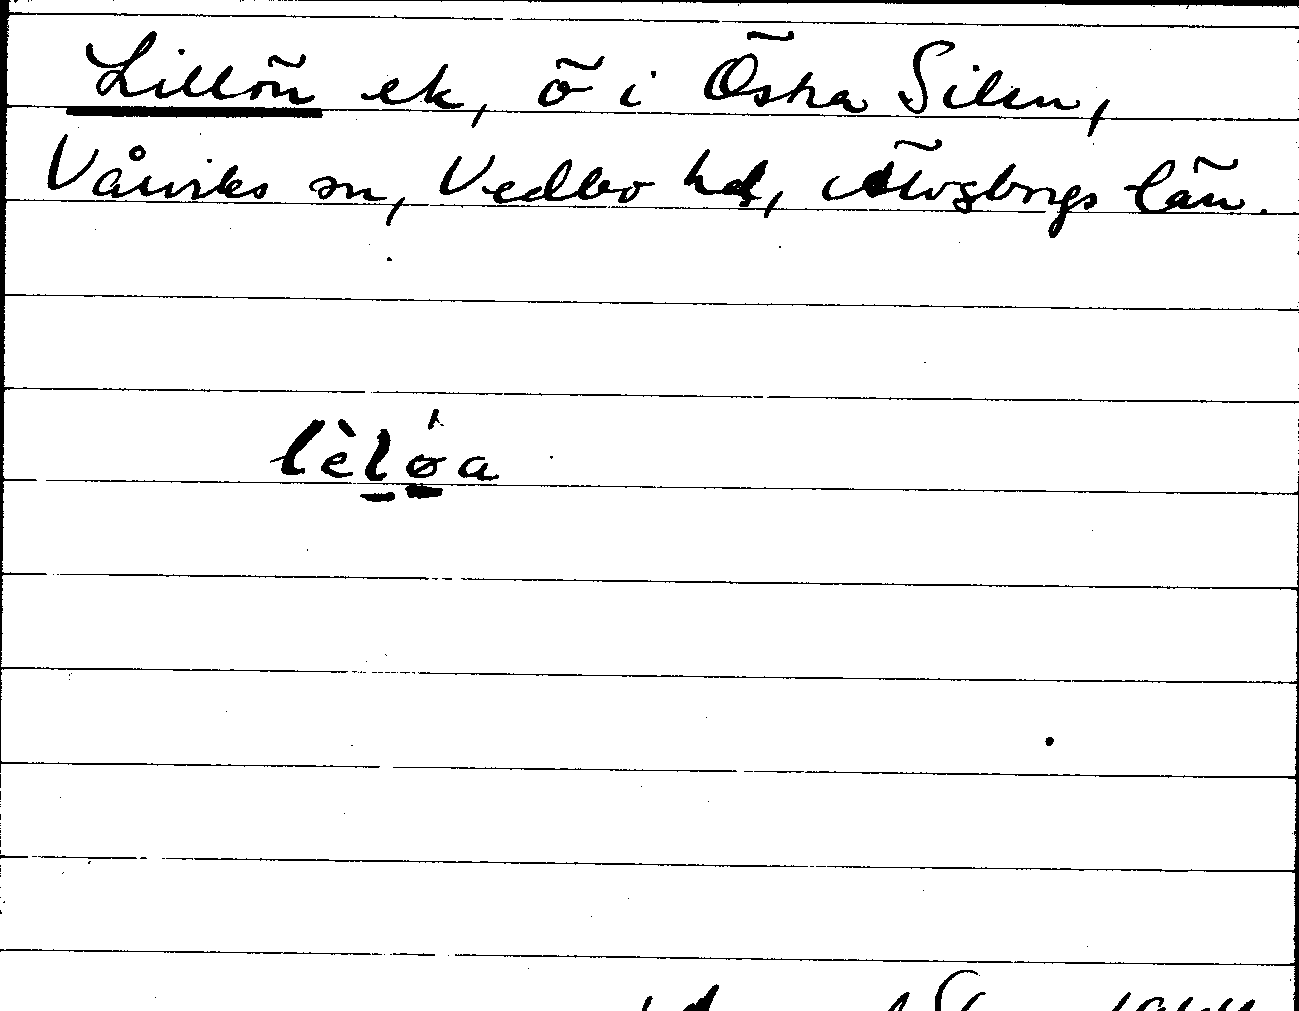 Lillön ek, ö i Östra Silen,
Vårviks sn, Vedbo hd, Älvsborgs län.
lèl̠ǿ̠a